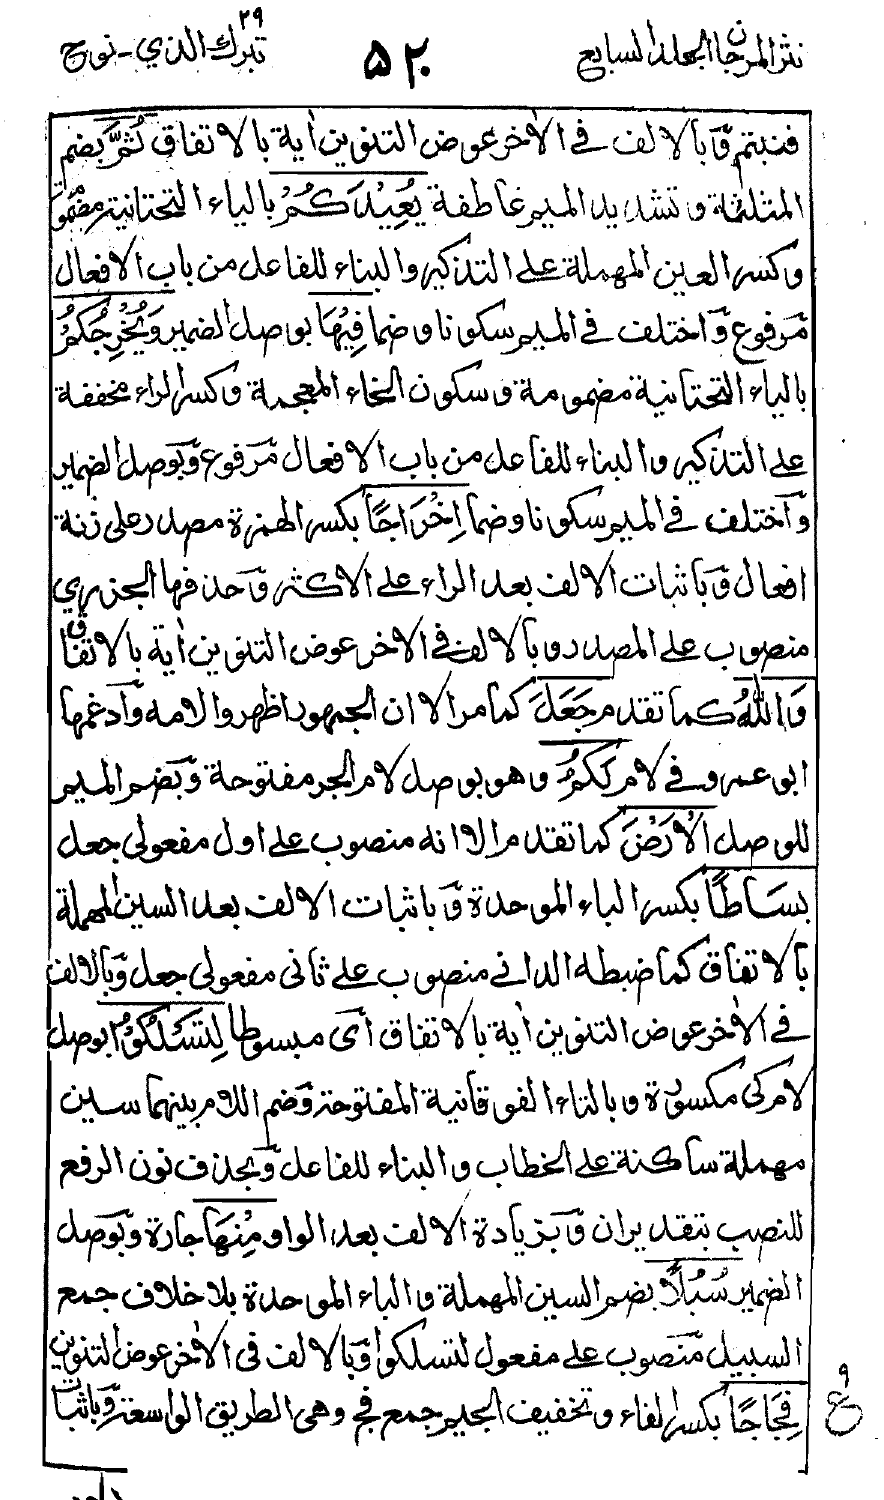 نثر المرجان المجلد السابع
٥٢٠
٢٩
تبرك الذي - نوح
فنبتم وبالالف في الاخر عوض التنوين اٰية بالاتفاق ثُمَّ بضم
المثلثة وتشديد الميم عاطفة يُعِيْدُكُمْ بالياء التحتانية مضمومة
وكسر العين المهملة على التذكير والبناء للفاعل من باب الافعال
مرفوع واختلف في الميم سكونا وضما فِيْهَا بوصل الضمير وَيُخْرِجُكُمْ
بالياء التحتانية مضمومة وسكون الخاء المعجمة وكسر الراء مخففة
على التذكير والبناء للفاعل من باب الافعال مرفوع وبوصل الضمير
واختلف في الميم سكونا وضما اِخْرَاجًا بكسر الهمزة مصدر على زنة
افعال وباثبات الالف بعد الراء على الاكثر وحذفها الجزري
منصوب على المصدر وبالالف في الاخر عوض التنوين اٰية بالاتفاق
وَاللّٰهُ كما تقدم جَعَلَ كما مر الا ان الجمهور اظهروا لامه وادغمها
ابو عمرو في لام لَكُمُ وهو بوصل لام الجر مفتوحة وبضم الميم
للوصل الْاَرْضَ كما تقدم الا انه منصوب على اول مفعولي جعل
بِسَاطًا بكسر الباء الموحدة وباثبات الالف بعد السين المهملة
بالاتفاق كما ضبطه الداني منصوب على ثاني مفعولي جعل وبالالف
في الاخر عوض التنوين اٰية بالاتفاق اى مبسوطا لِتَسْلُكُوْا بوصل
لام كى مكسورة وبالتاء الفوقانية المفتوحة وضم اللام بينهما سين
مهملة ساكنة على الخطاب والبناء للفاعل وبحذف نون الرفع
للنصب بتقدير ان وبزيادة الالف بعد الواو مِنْهَا جارة وبوصل
الضمير سُبُلًا بضم السين المهملة والباء الموحدة بلا خلاف جمع
السبيل منصوب على مفعول لتسلكوا وبالالف في الاخر عوض التنوين
فِجَاجًا بكسر الفاء وتخفيف الجيم جمع فج وهى الطريق الواسعة وباثبات
٩
ع